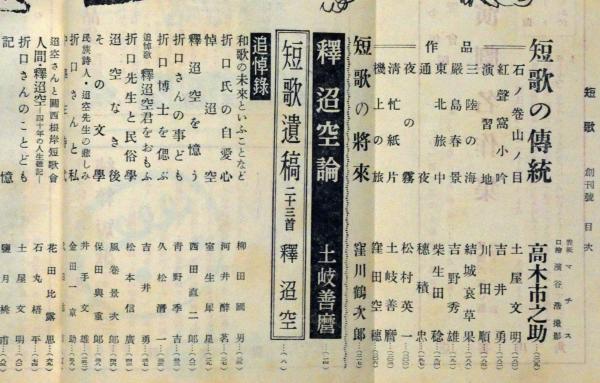 短歌 創刊号 目次
表紙 マチス
口絵 濱谷浩撮影
短歌の傳統 高木市之助
作品
石ノ巻山ノ目 土屋文明
紅聲窩小吟 吉井勇
演習地 川田順
三陸の海 結城哀草果
嚴島春景 吉野秀雄
東北旅中 柴生田稔
通夜 穂積忠
夜の霧 松村英一
淸忙紙片 土岐善麿
機上の旅 窪田空穂
短歌の將來 窪川鶴次郎
釋迢空論 土岐善麿
短歌遺稿 二十三首 釋迢空
追悼錄
和歌の未來といふことなど 柳田國男
折口氏の自愛心 河井醉茗
悼迢空 室生犀星
釋迢空を憶う 西田直二郎
折口さんの事ども 靑野季吉
折口博士を偲ぶ 久松潛一
追悼歌 釋迢空君をおもふ 吉井勇
折口先生と民俗學 松本信廣
迢空なき後 風卷景次郎
その文學 保田與重郎
民族詩人・迢空先生の悲しみ 井手文雄
折口さんと私 金田一京助
迢空さんと關西根岸短歌會 花田比露思
人間・釋迢空―四十年の人生雜記― 石丸梧平
折口さんのことども 土屋文明
記憶 鹽月桃甫